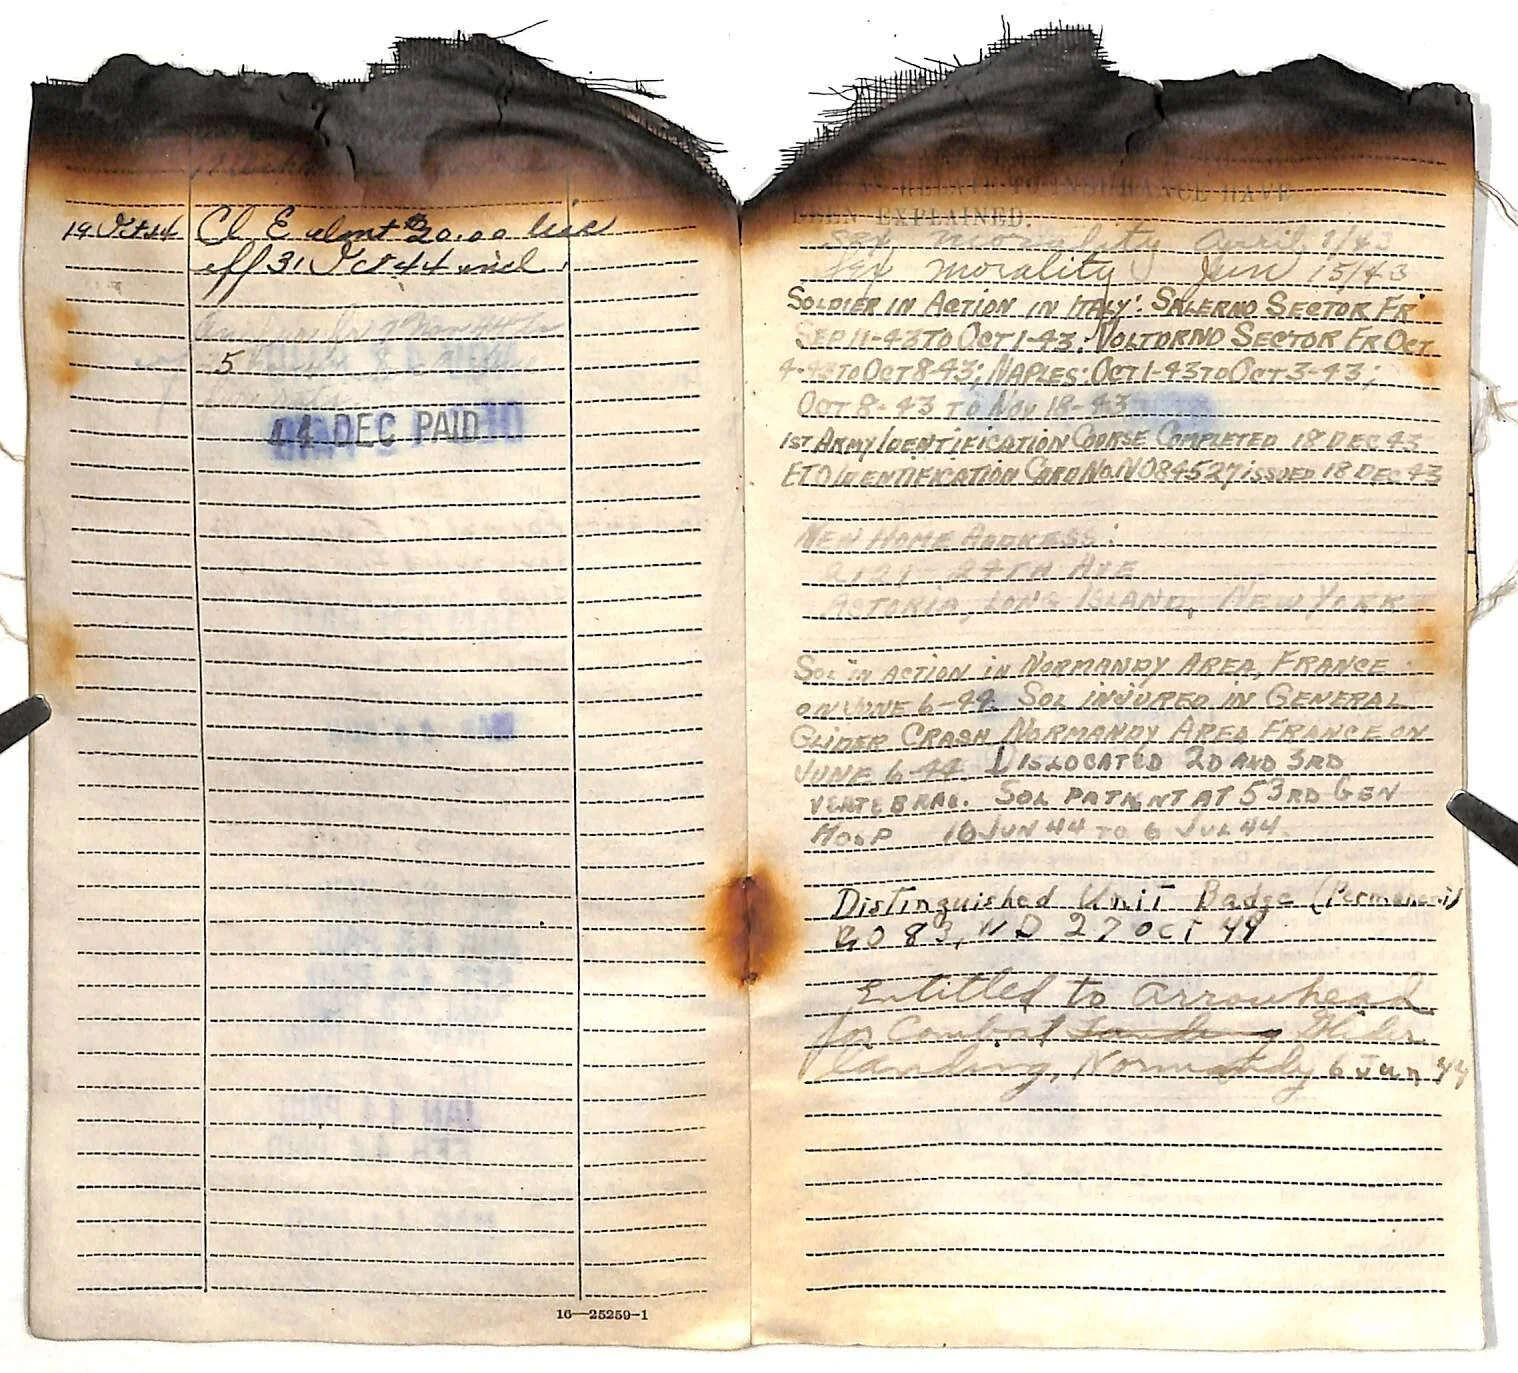 19 Oct 44 Cl E almt $20.00 disc
eff 31 Oct 44 incl.
5
44 DEC PAID
16—25259-1
RELATE TO INSURANCE HAVE
BEEN EXPLAINED.
Sex morality April 1/43
Sex morality Jun 15/43
SOLDIER IN ACTION IN ITALY: SALERNO SECTOR FR
SEP 11-43 TO OCT 1-43. VOLTORNO SECTOR FR OCT.
4-43 TO OCT 8-43; NAPLES: OCT 1-43 TO OCT 3-43;
OCT 8-43 TO NOV 18-43
1ST ARMY IDENTIFICATION COURSE COMPLETED 18 DEC 43
ETO IDENTIFICATION CARD NO. N084527 ISSUED 18 DEC 43
NEW HOME ADDRESS:
2121-24TH AVE
ASTORIA, LONG ISLAND, NEW YORK
SOL IN ACTION IN NORMANDY AREA, FRANCE
ON JUNE 6-44. SOL INJURED IN GENERAL
GLIDER CRASH NORMANDY AREA FRANCE ON
JUNE 6-44 DISLOCATED 2D AND 3RD
VERTEBRAE. SOL PATIENT AT 53RD GEN
HOSP 10 JUN 44 TO 6 JUL 44.
Distinguished Unit Badge (Permanent)
GO 83, WD 27 OCT 44
Entitled to Arrowhead
for Combat Landing Glider
landing, Normandy 6 Jun 44